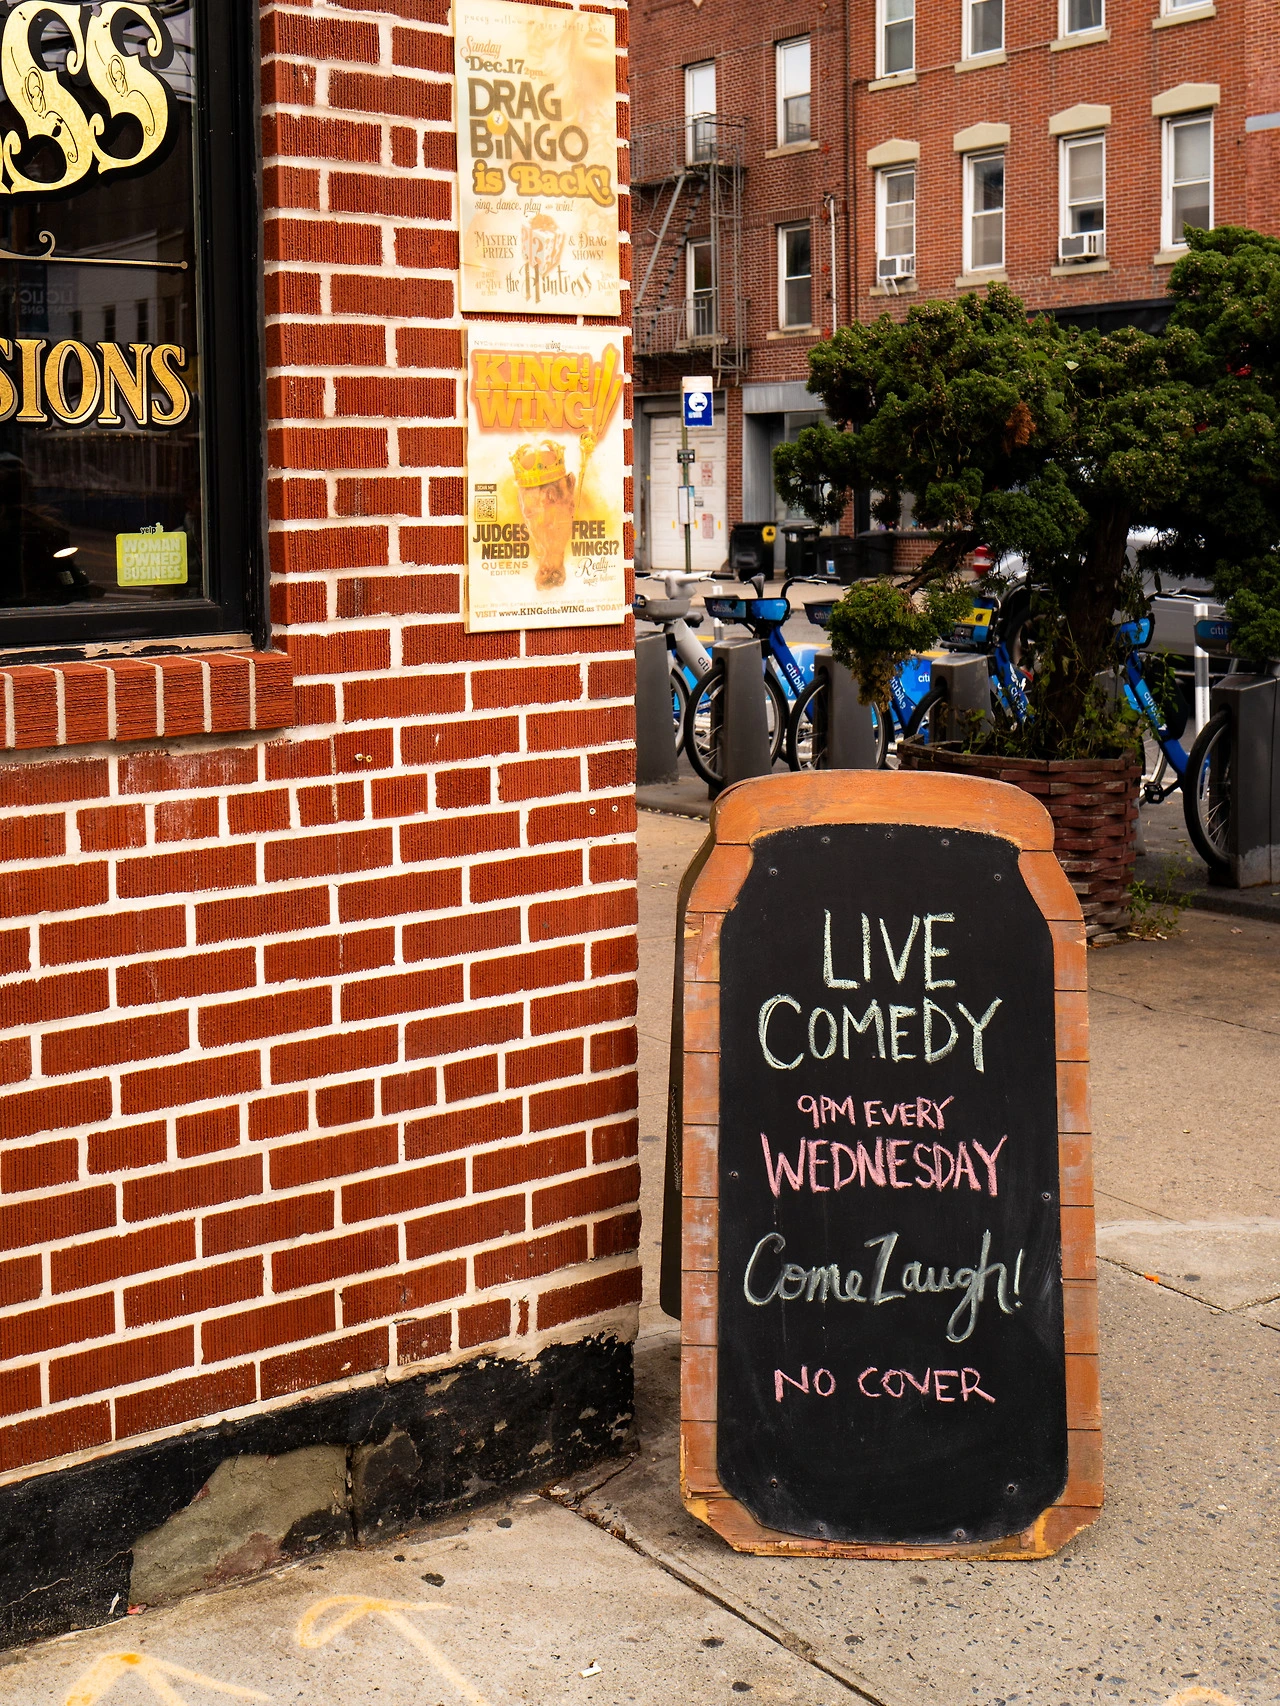 SS
SIONS
yelp
WOMAN
OWNED
BUSINESS
Sunday
Dec.17
DRAG
BiNGO
is Back!
sing, dance, play win!
MYSTERY
PRIZES
& DRAG
SHOWS!
the Huntress
KING of the
WING
SCAN ME
JUDGES
NEEDED
QUEENS
EDITION
FREE
WINGS!?
Really...
VISIT www.KINGoftheWING.us TODAY
citibike
citibike
citi
LIVE
COMEDY
9PM EVERY
WEDNESDAY
Come Laugh!
NO COVER